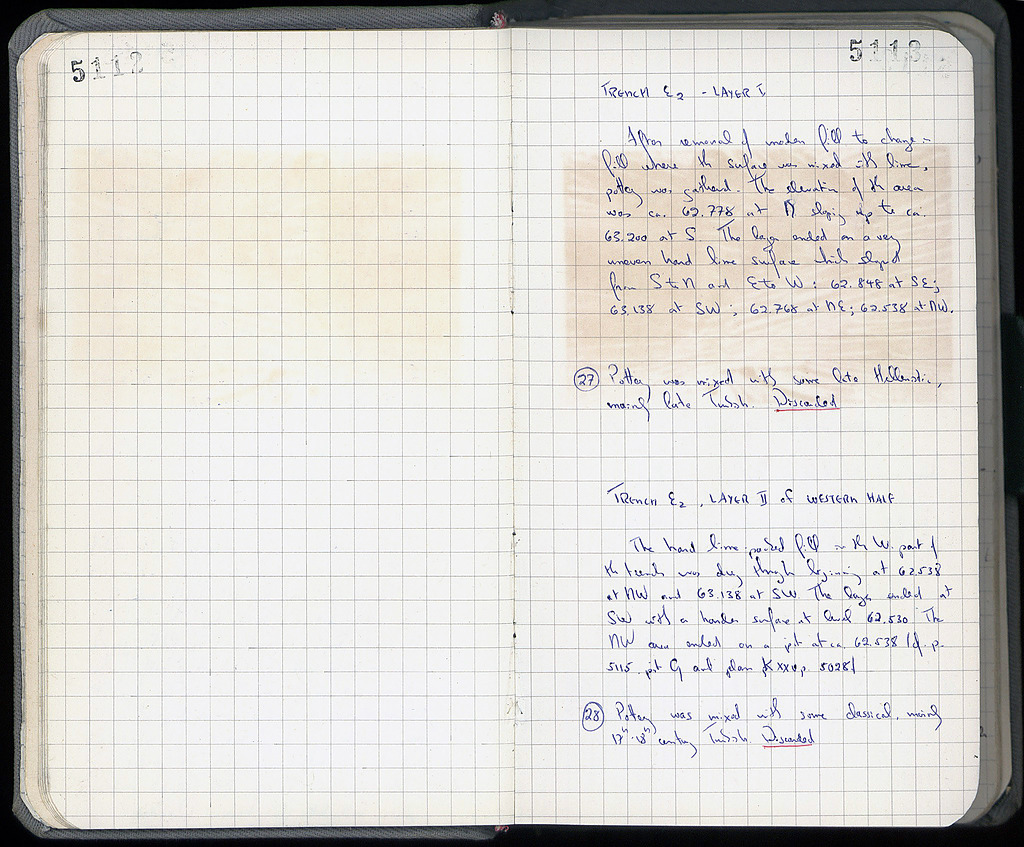 5112
5113
TRENCH E2 - LAYER I
After removal of modern fill to change in
fill where the surface was mixed with lime,
pottery was gathered. The elevation of the area
was ca. 62.778 at N sloping up to ca.
63.200 at S. The layer ended on a very
uneven hard lime surface which sloped
from S to N and E to W: 62.848 at SE;
63.138 at SW; 62.768 at NE; 62.538 at NW.
27 Pottery was mixed with some late Hellenistic,
mainly late Turkish. Discarded
TRENCH E2, LAYER II of WESTERN HALF
The hard lime-packed fill in the W. part of
the trench was dug through beginning at 62.538
at NW and 63.138 at SW. The layer ended at
SW with a harder surface at level 62.530 The
NW area ended on a pit at ca. 62.538 /cf. p.
5115 pit G and plan XXV, p. 5028/
28 Pottery was mixed with some classical, mainly
17th-18th century Turkish. Discarded